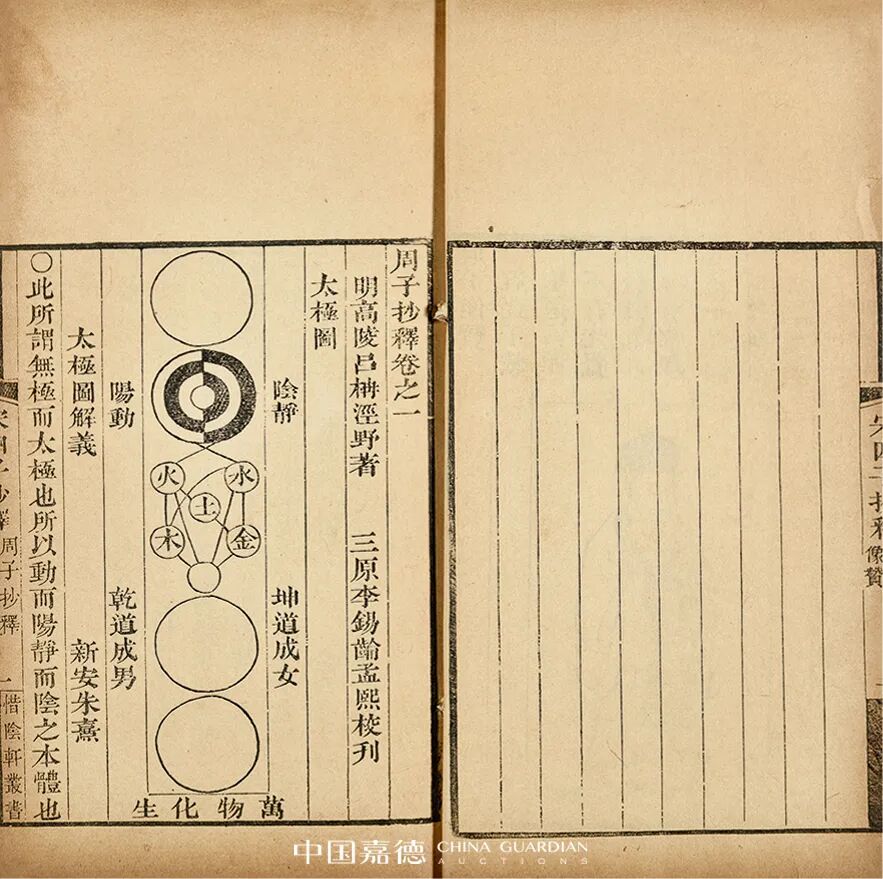 宋四子抄釋
像贊
周子抄釋卷之一
明高陵呂柟涇野著 三原李錫齡孟熙校刊
太極圖
陰靜
坤道成女
火 水
土
木 金
萬物化生
陽動
乾道成男
太極圖解義 新安朱熹
○此所謂無極而太極也所以動而陽靜而陰之本體也
宋四子抄釋 周子抄釋 一 惜陰軒叢書
中国嘉德 CHINA GUARDIAN
AUCTIONS